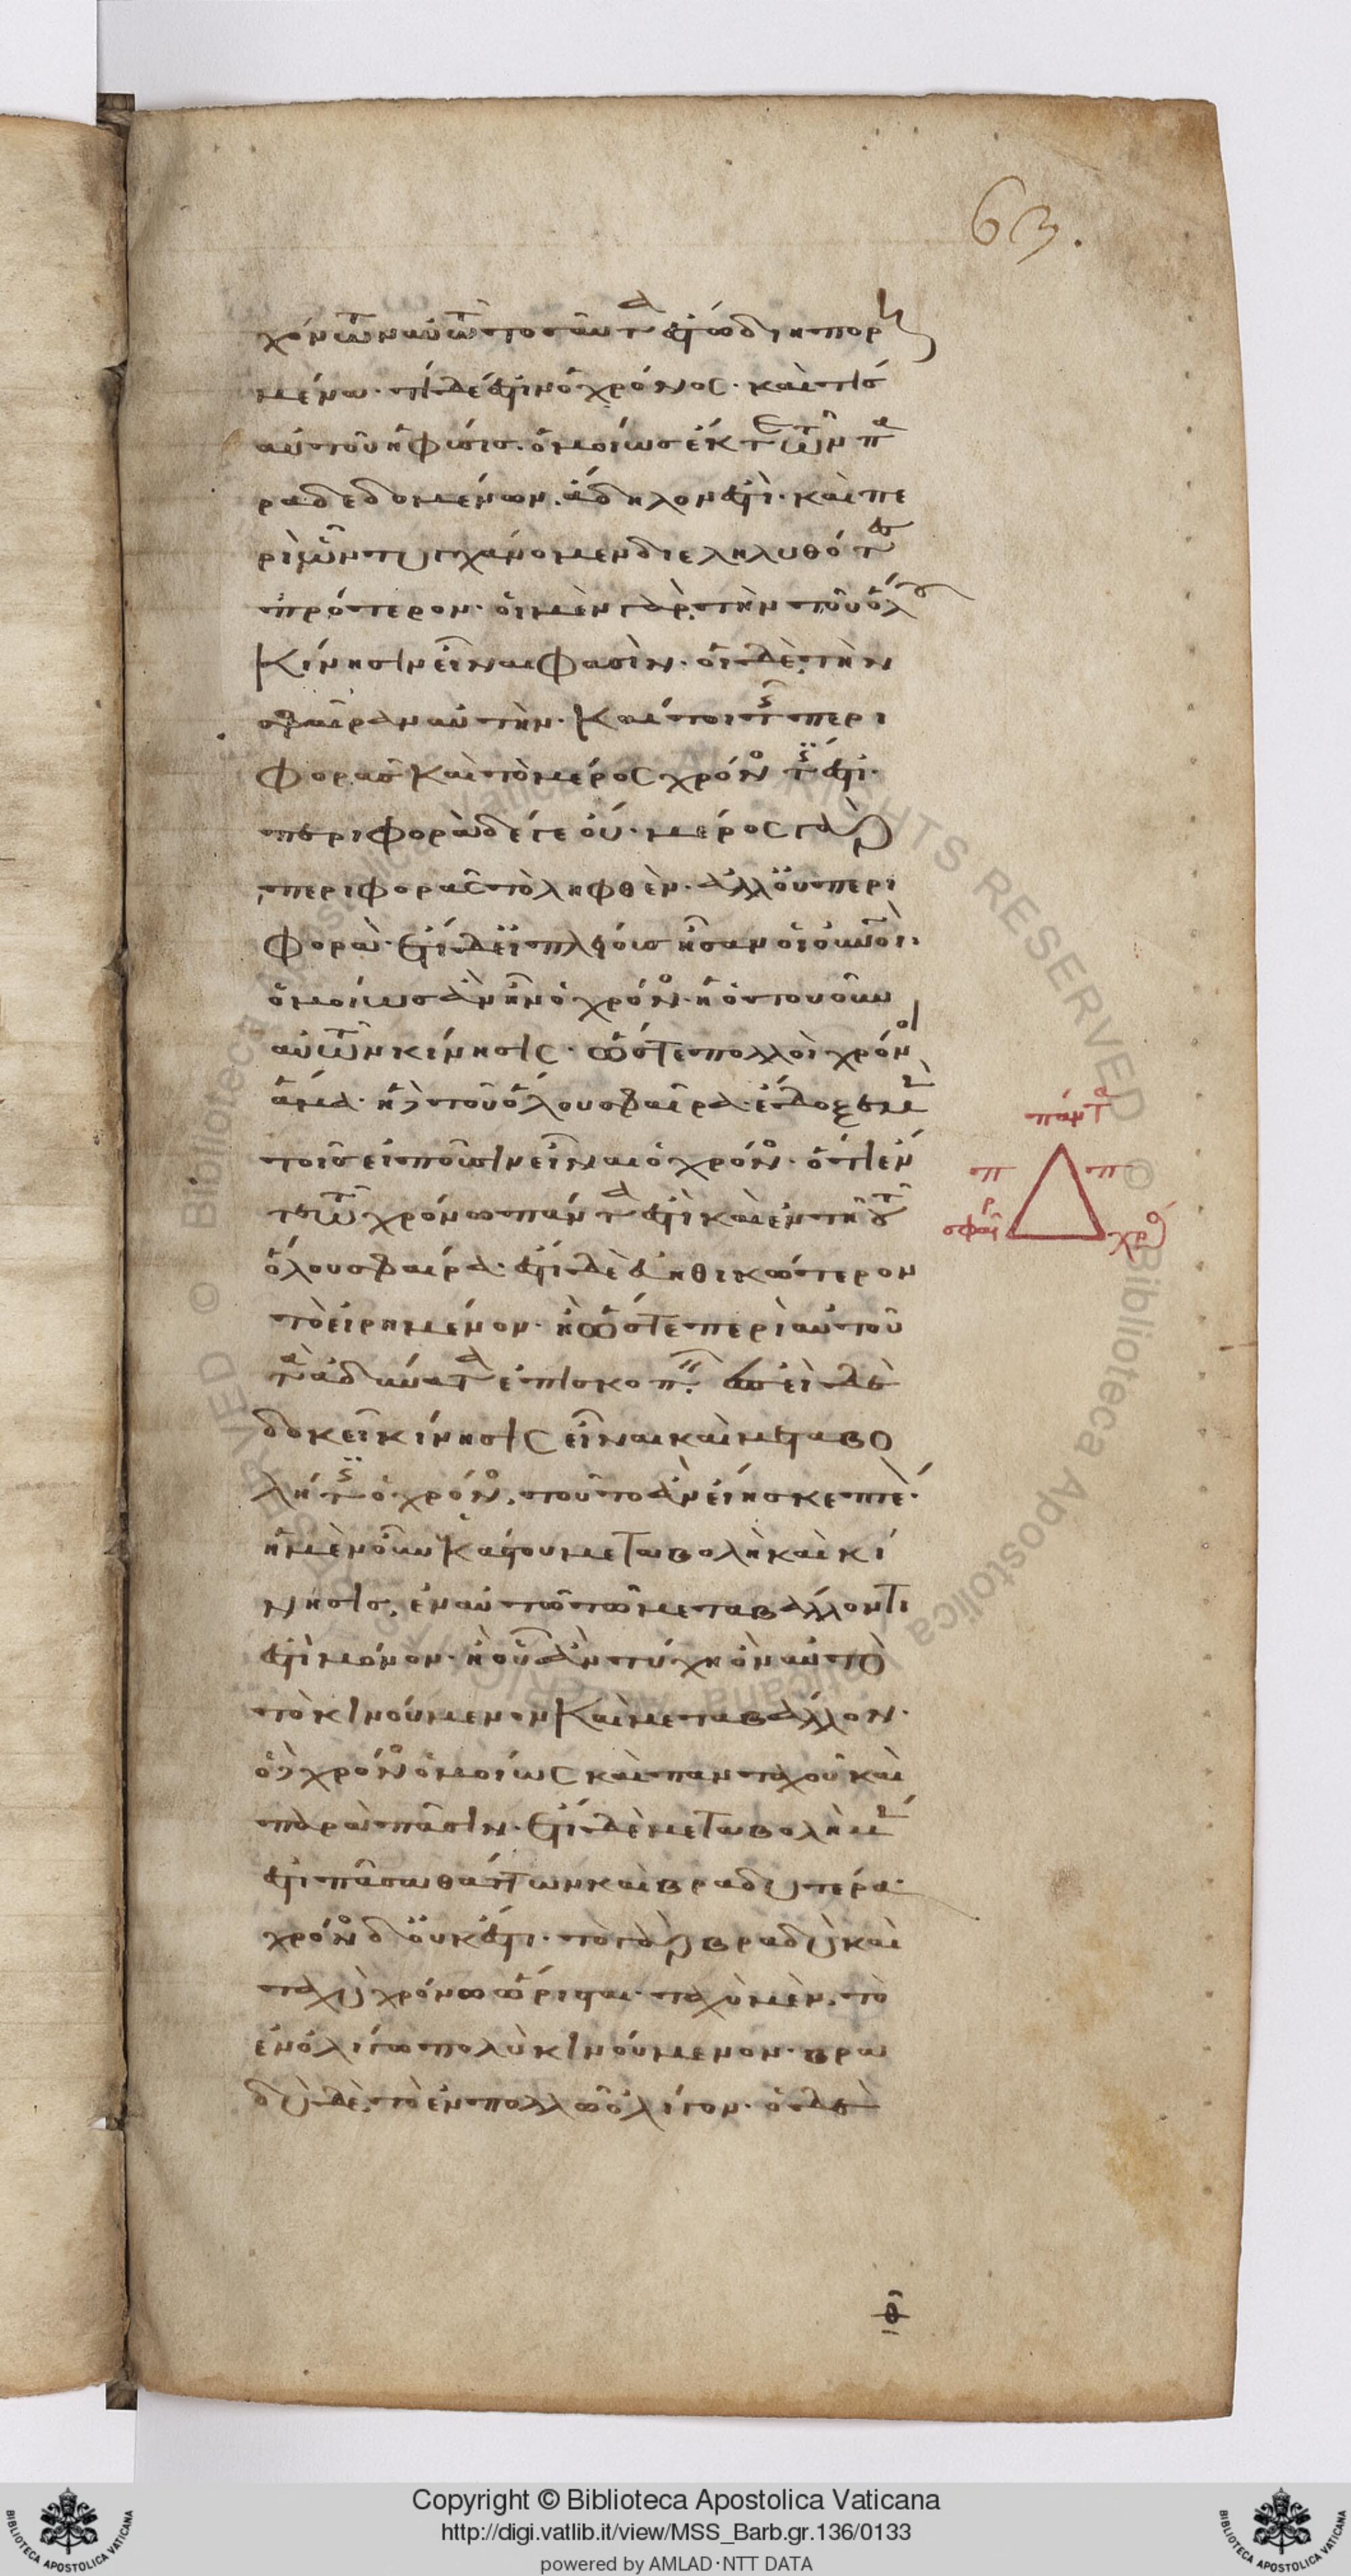 63.
χόντων αὐτῷ τοσαῦτα ἔστω διηπορη
μένα. τί δέ ἐστιν ὁ χρόνος. καὶ τίσ
αὐτοῦ ἡ φύσισ. ὁμοίωσ ἔκ τε τῶν πα
ραδεδομένων. ἄδηλον ἐστὶ. καὶ πε
ρὶ ὧν τυγχάνομεν διεληλυθότες
πρότερον. οἱ μὲν γὰρ, τὴν τοῦ ὅλου
κίνησιν εἶναι φασὶν. οἱ δὲ, τὴν
σφαῖραν αὐτὴν. καίτοι τῆς περι
φορᾶσ καὶ τὸ μέρος χρόνος τίς ἐστι.
περιφορὰ δέ γε οὔ. μέρος γὰρ
περιφορᾶς τὸ ληφθὲν. ἀλλ' οὐ περι
φορὰ. ἔτι δ' εἰ πλείουσ ἦσαν οἱ οὐρανοὶ.
ὁμοίωσ ἂν ἦν ὁ χρόνος. ἡ ὁτουοῦν
αὐτῶν κίνησις. ὥστε πολλοὶ χρόνοι
ἅμα. ἡ δὲ τοῦ ὅλου σφαῖρα. ἔδοξε μὲν
τοῖσ εἰποῦσιν εἶναι ὁ χρόνος. ὅτι ἔν
τε τῷ χρόνω πάντα ἐστὶ καὶ ἐν τῇ τοῦ
ὅλου σφαίρα. ἔστι δὲ εὐηθικώτερον
τὸ εἰρημένον. ἢ ὥστε περὶ αὐτοῦ
τὰ ἀδύνατα ἐπισκοπεῖν. ἐπεὶ δὲ
δοκεῖ κίνησις εἶναι καὶ μεταβο
λή τις ὁ χρόνος, τοῦτο ἂν εἴη σκεπτέον.
ἡ μὲν οὖν ἑκάστου μεταβολὴ καὶ κί
νησισ, ἐν αὐτῶ τῶ μεταβάλλοντι
ἐστὶ μόνον. ἢ οὗ ἂν τύχη ὂν αὐτὸ
τὸ κινούμενον καὶ μεταβάλλον.
ὁ δὲ χρόνος ὁμοίως καὶ πανταχοῦ καὶ
παρὰ πᾶσιν. ἔτι δὲ μεταβολὴ μέν
ἐστι πᾶσα θάττων καὶ βραδυτέρα.
χρόνος δ' οὐκ ἔστι. τὸ γὰρ βραδὺ καὶ
ταχὺ χρόνω ὥρισται. ταχὺ μὲν, τὸ
ἐν ὀλίγω πολὺ κινούμενον. βρα
δὺ δὲ, τὸ ἐν πολλῶ ὀλίγον. ὁ δὲ
πάντα
π π
σφαῖρ χρό
Copyright © Biblioteca Apostolica Vaticana
http://digi.vatlib.it/view/MSS_Barb.gr.136/0133
powered by AMLAD·NTT DATA